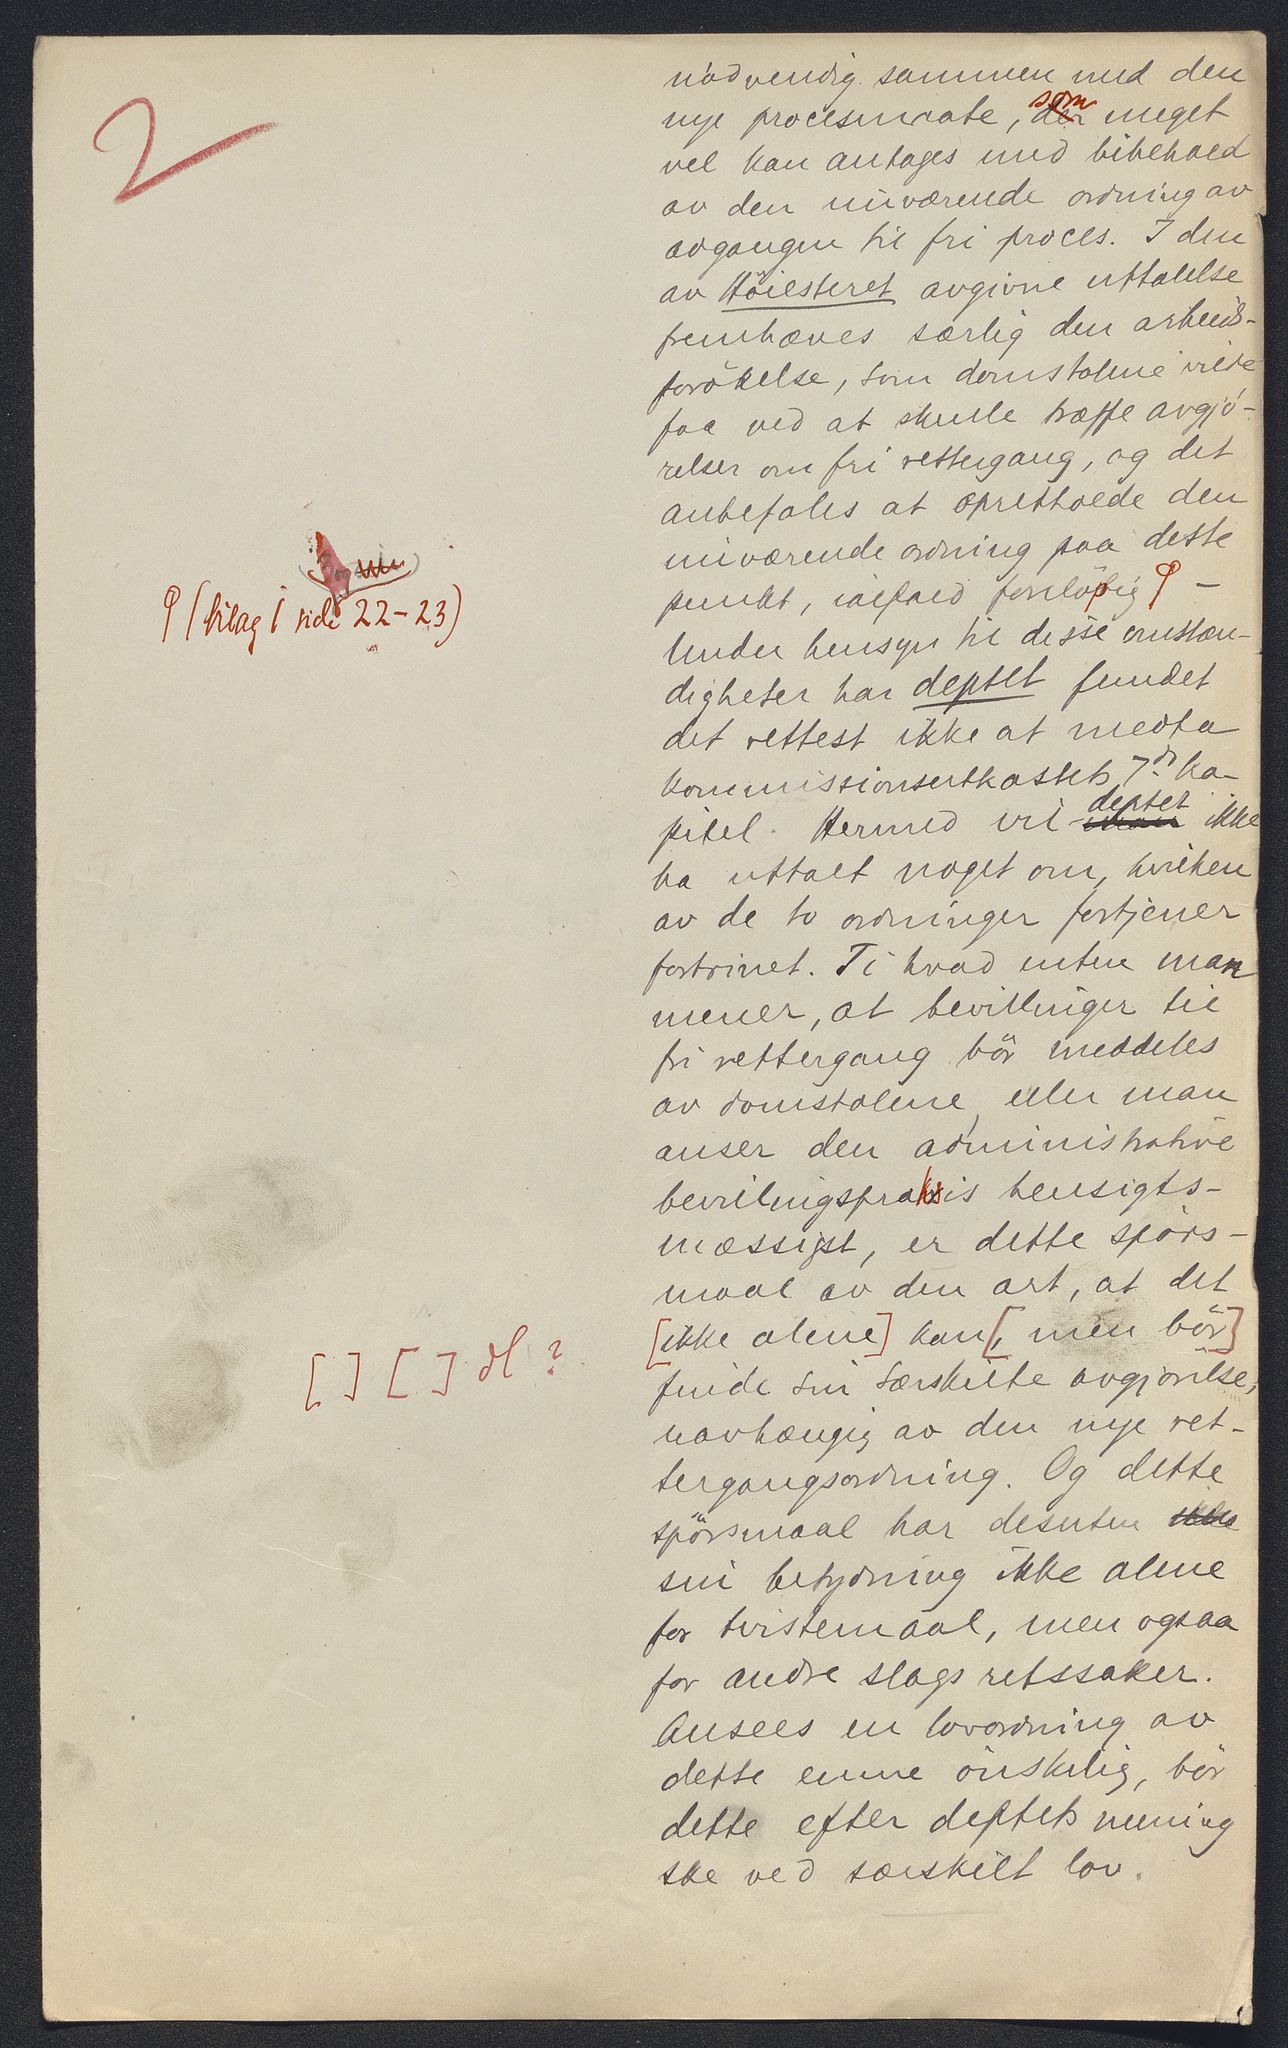 2
nødvendig sammen med den
nye procesmaate, som der meget
vel kan antages med bibehold
av den nuværende ordning av
avgangen til fri proces. I den
av Höiesteret avgivne uttalelse
fremhæves særlig den arbeids-
forökelse, som domstolene vilde
faa ved at skulle træffe avgjö-
relser om fri rettergang, og det
anbefales at opretholde den
nuværende ordning paa dette
punkt, ialfald foreløbig ꟼ -
ꟼ (bilag 1 side 22-23)
Under hensyn til disse omstæn-
digheter har deptet fundet
det rettest ikke at medta
kommissionsutkastets 7de ka-
pitel. Hermed vil deptet ikke
ha uttalt noget om, hvilken
av de to ordninger fortjener
fortrinet. Ti hvad enten man
mener, at bevillinger til
fri rettergang bör meddeles
av domstolene, eller man
anser den administrative
bevilningspraksis hensigts-
mæssigst, er dette spörs-
maal av den art, at det
[ikke alene] kan [, men bör]
[ ] [ ] dl ?
finde sin særskilte avgjörelse,
uavhængig av den nye ret-
tergangsordning. Og dette
spörsmaal har desuten
sin betydning ikke alene
for tvistemaal, men ogsaa
for andre slags retssaker.
Ansees en lovordning av
dette emne önskelig, bör
dette efter deptets mening
ske ved særskilt lov.